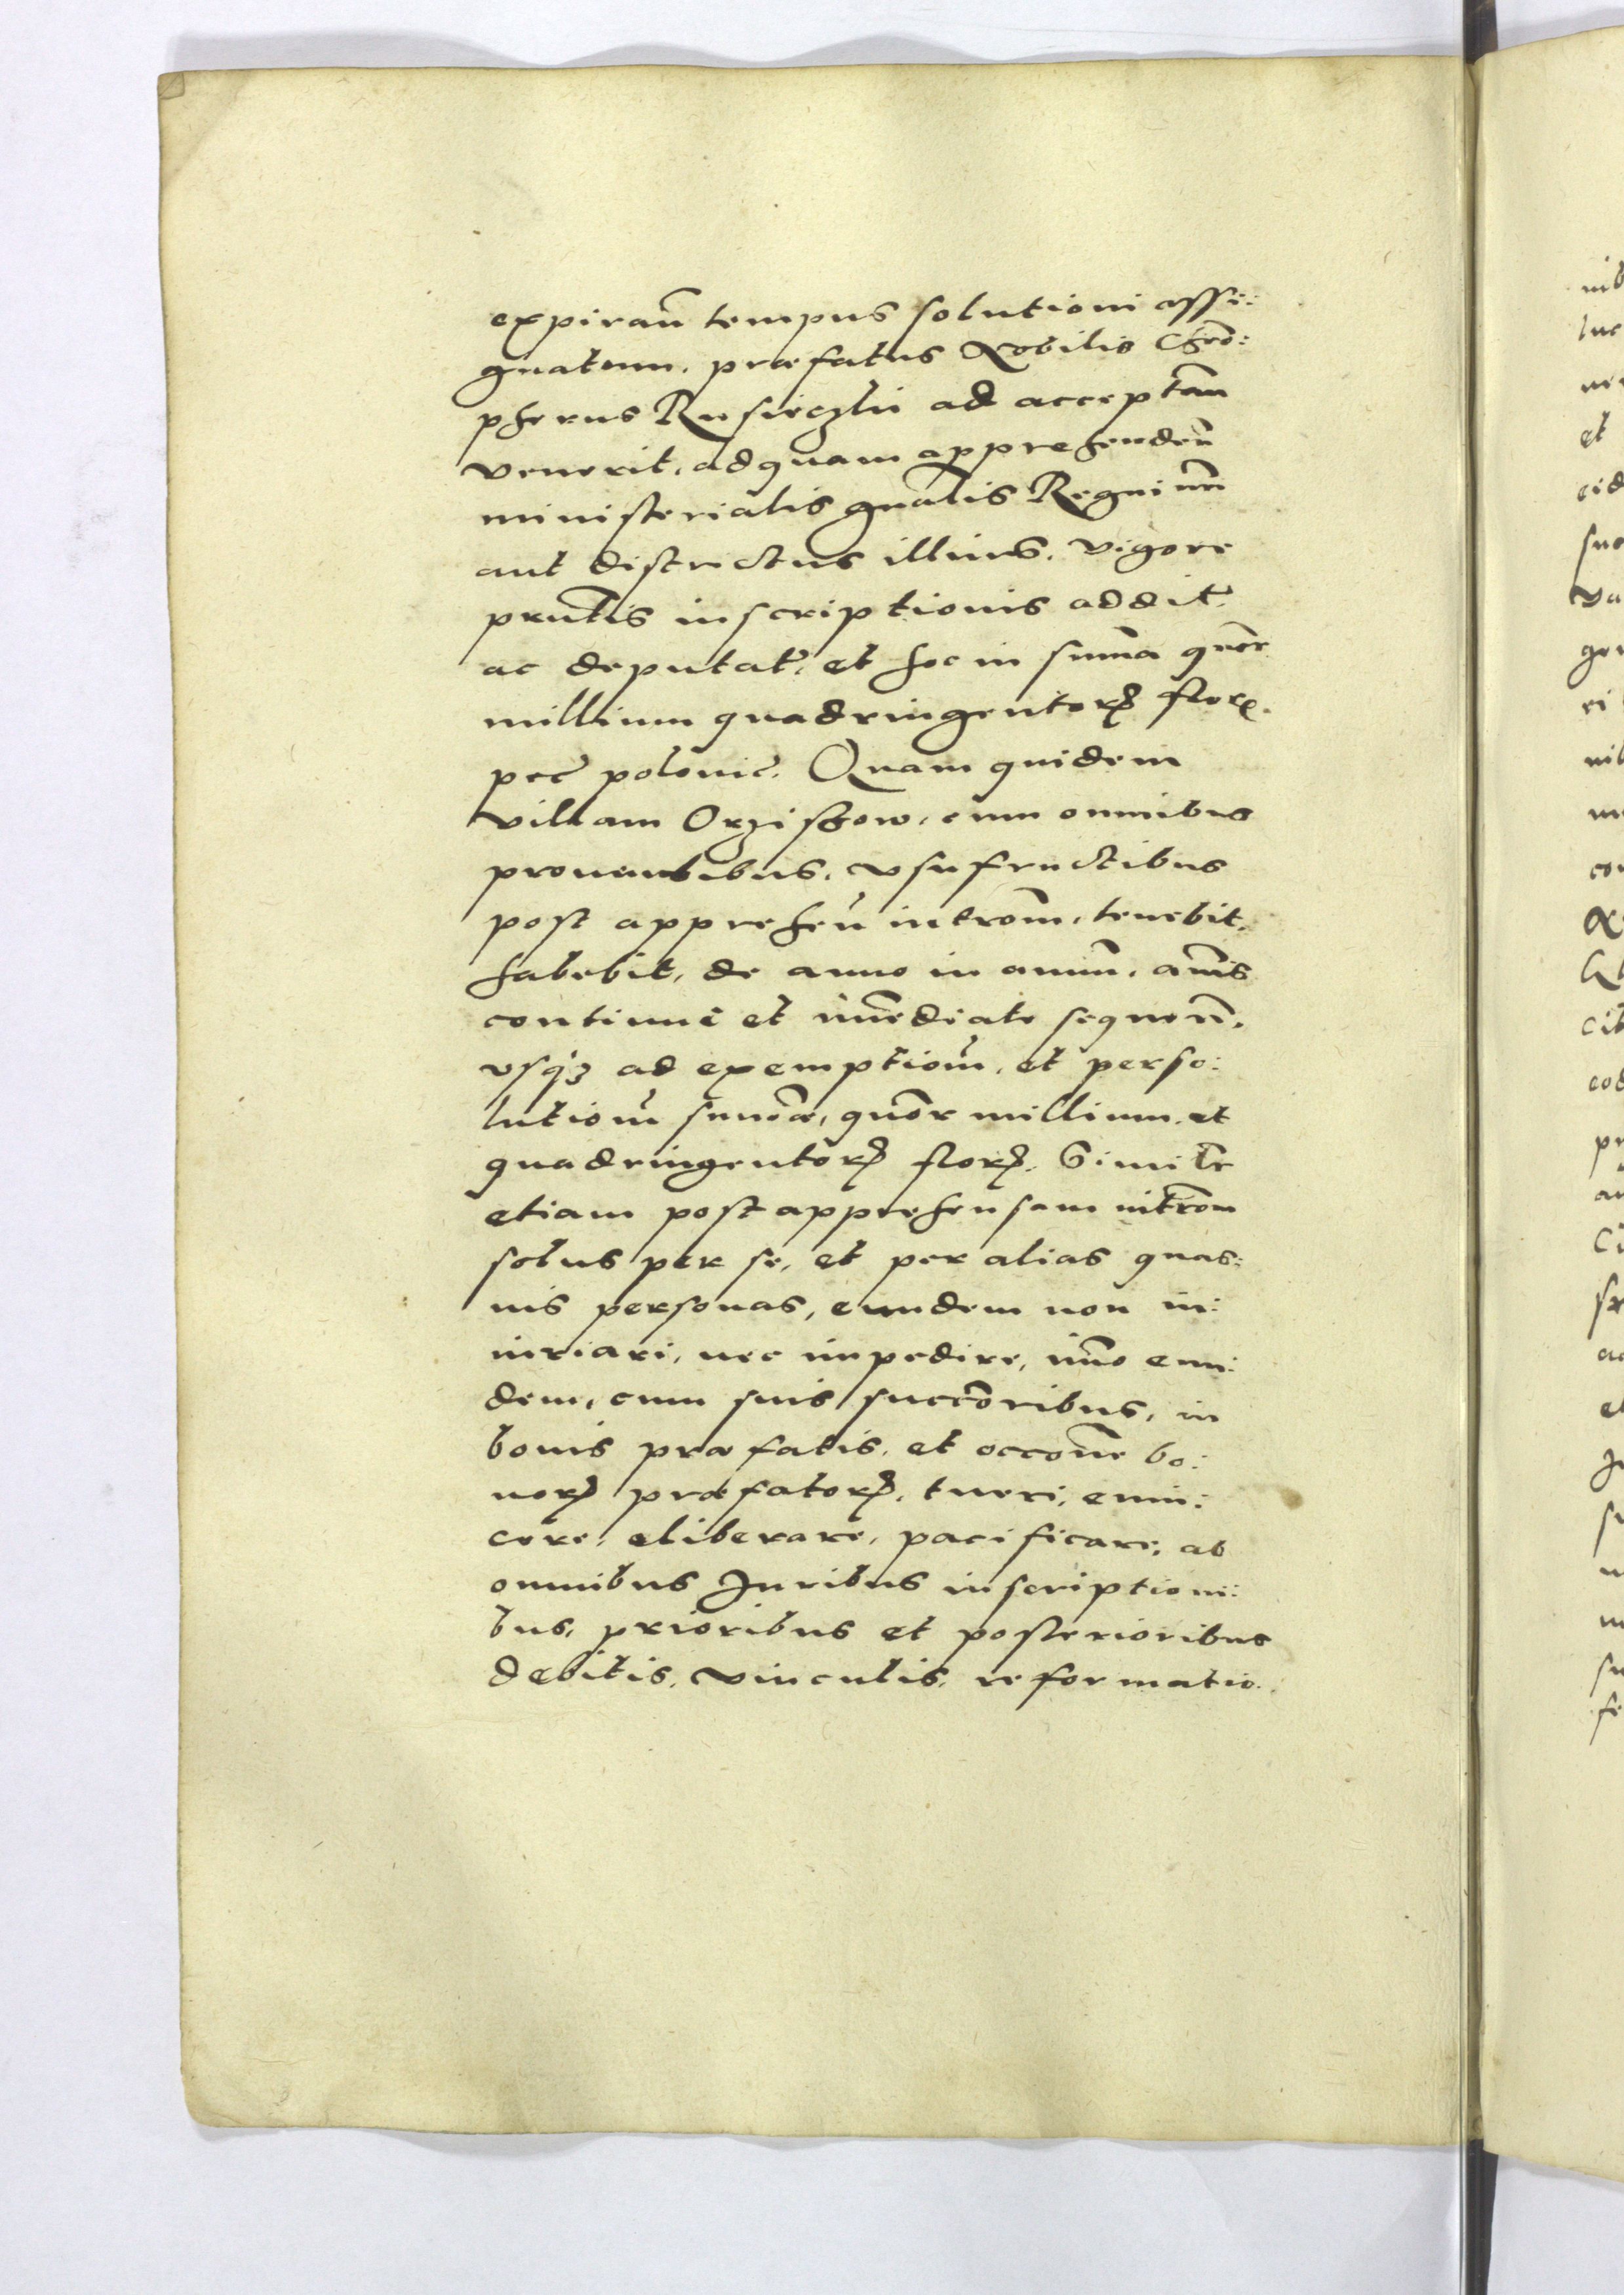 expiran̄ tempus solutioni assi:
gnatum. præfatus Nobilis Chro:
pherus Rusieczki ad acceptan̄
venerit, ad quam apprehenden̄
ministerialis gnālis Regni un̄
aut districtus illius. vigore
prntis inscriptionis addit̄
ac deputat̄, et hoc in summa quor̄
millium quadringentorꝝ florꝝ.
pec̄ polonic̄. Quam quidem
villam Orzischow, cum omnibus
prouentibus, vsufructibus
post apprehen̄ introm̄, tenebit,
habebit, de anno in annū, annis
continuē et immediate sequen̄.
vsq́ꝫ ad exemptionē, et perso:
lutionē summæ, quor̄ millium et
quadringentorꝝ florꝝ. Similr̄
etiam post apprehensam introm̄
solus per se, et per alias quas:
uis personas, eundem non in:
iuriari, nec impedire, imo eun:
dem, cum suis succōribus, in
bonis præfatis, et occōne bo:
norꝝ præfatorꝝ, tueri, euin:
cere, eliberare, pacificare, ab
omnibus Iuribus inscriptioni:
bus, prioribus et posterioribus
debitis, vinculis, reformatio.
nib
et
eid
suo
va
ri
nib
cit
eod